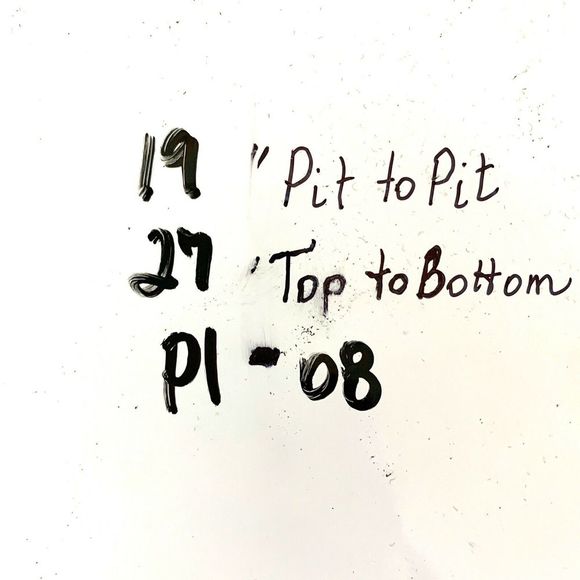 19 " Pit to Pit
27 ' Top to Bottom
P1 - 08